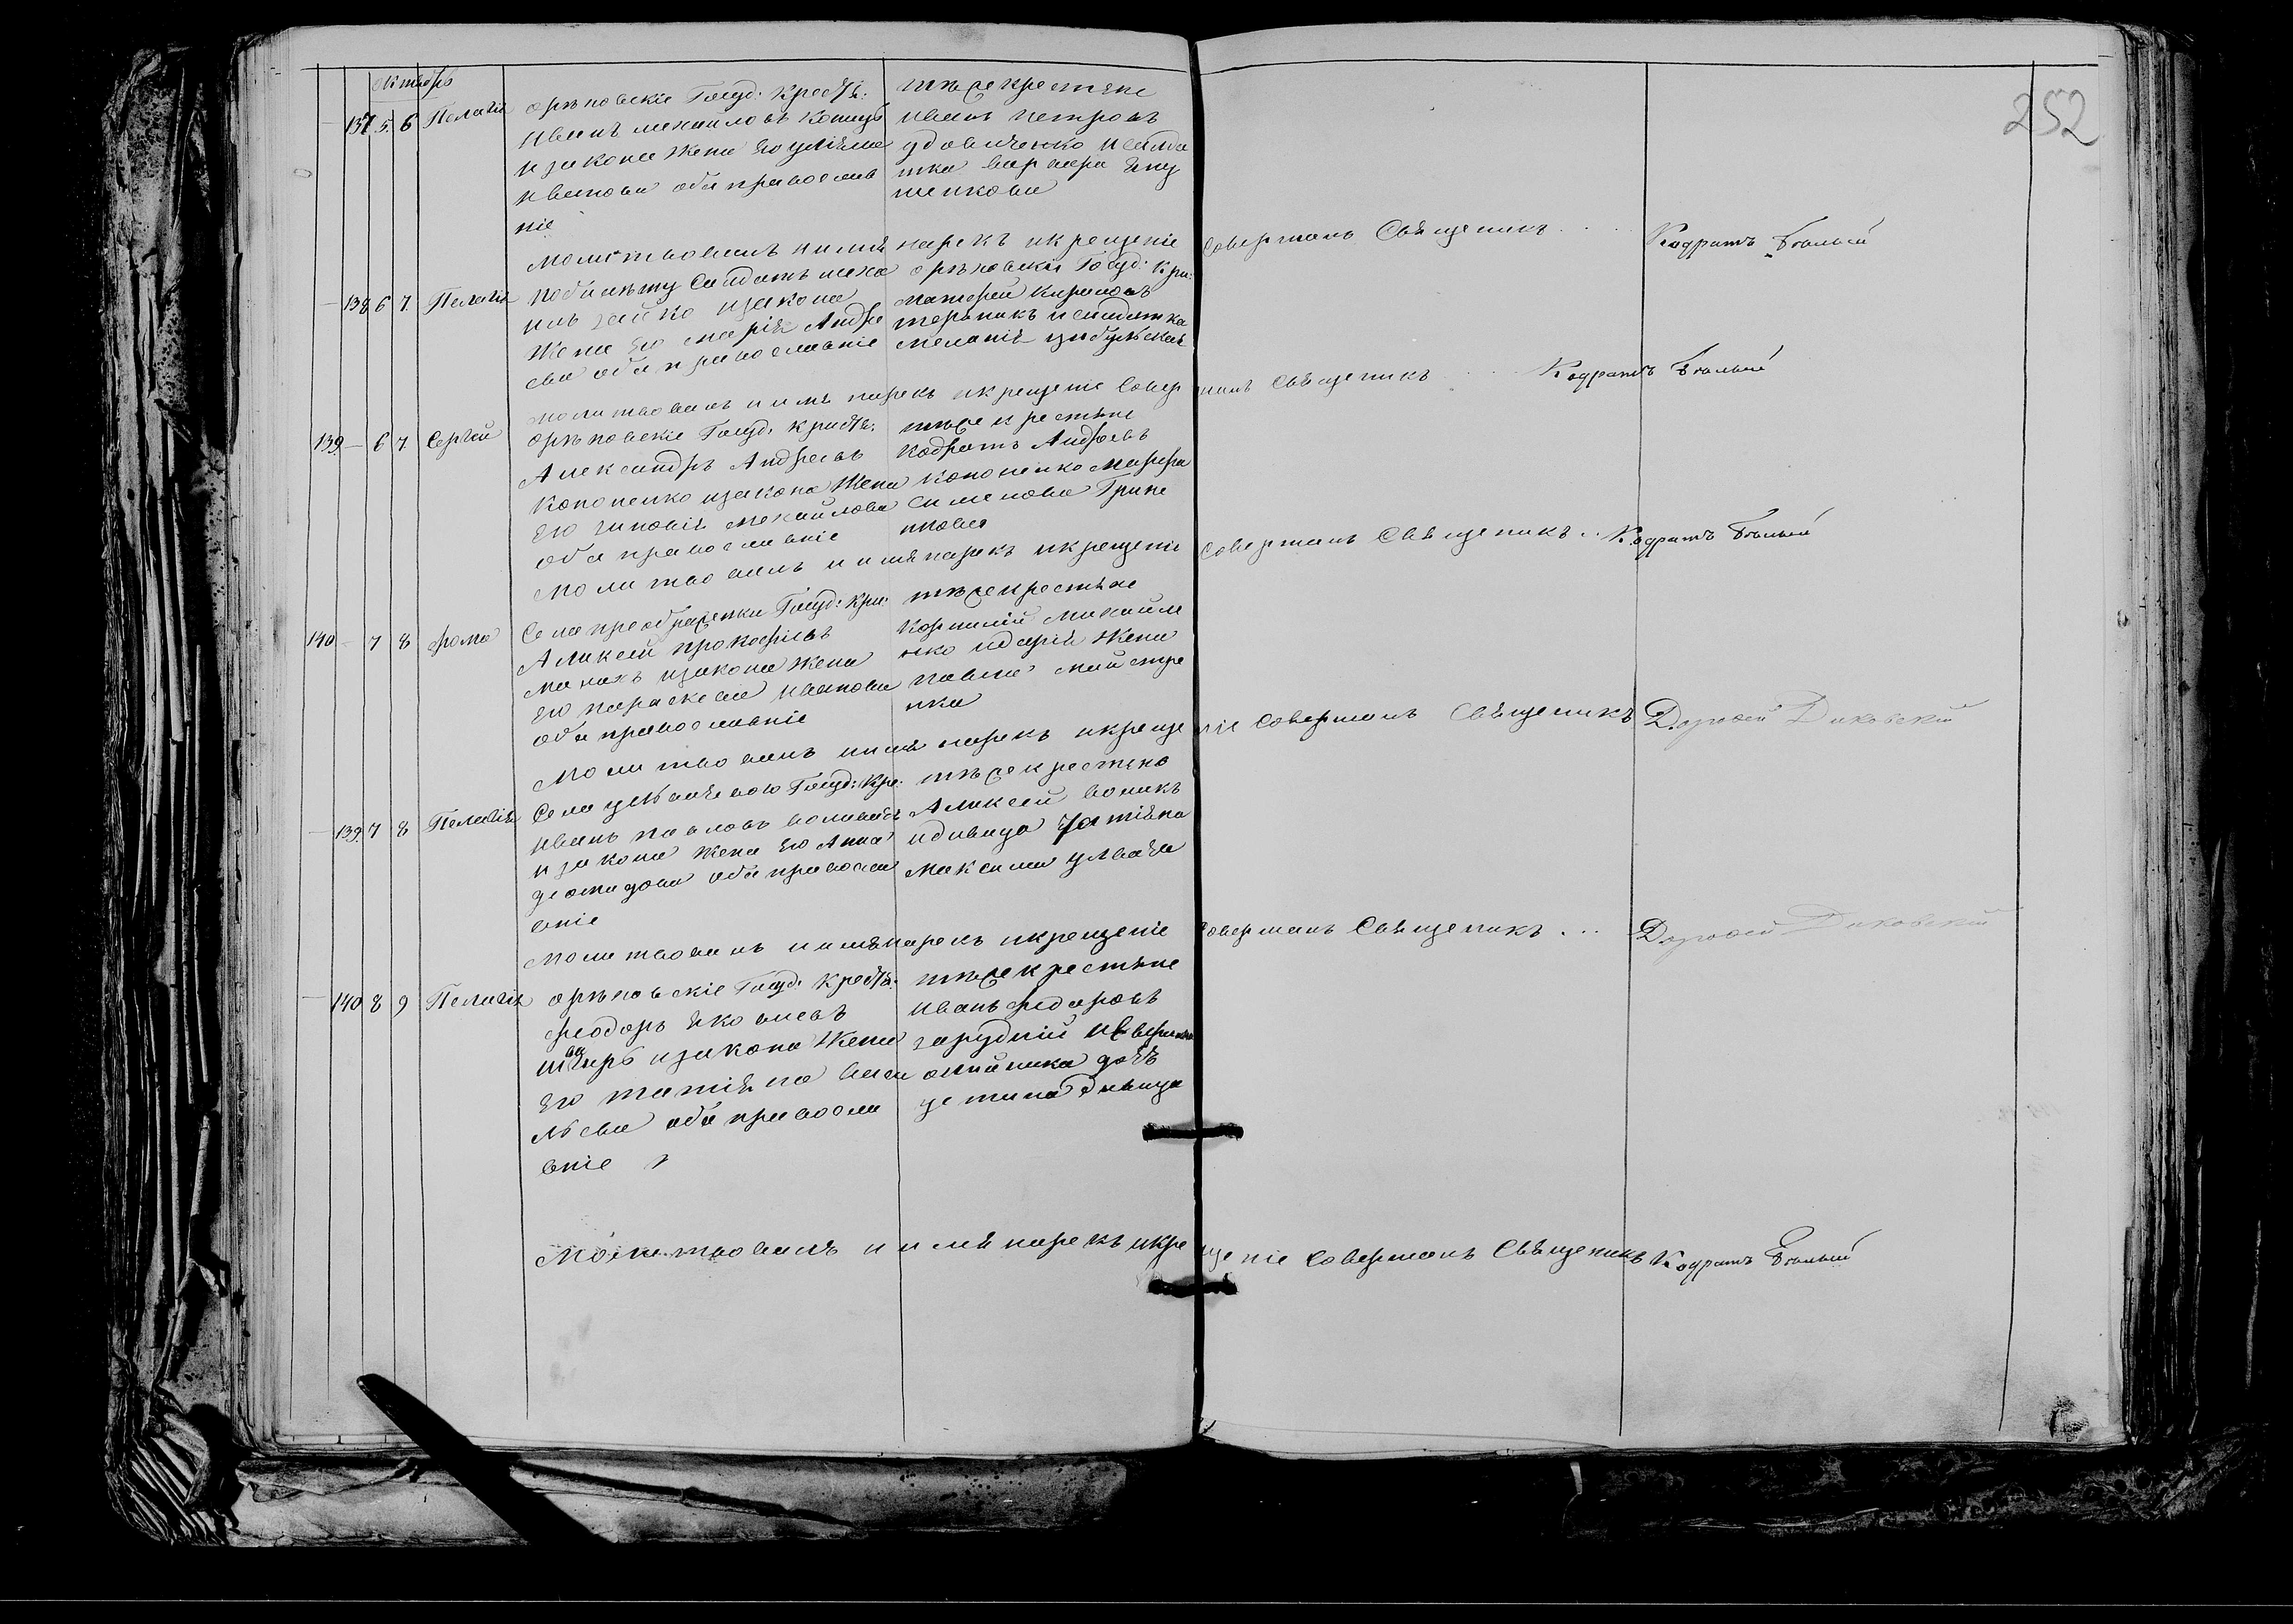 252
октябрь
137 5. 6 Пелагія
орѣховскіе Госуд: Крестя:
Иванъ михайловъ
изаконна жена его уліяна
иванова оба православ
ніе
тѣже крестяне
иванъ петровъ
удовиченко исалда
тка варвара
молитвовалъ иимя нарекъ икрещеніе совершалъ Священикъ . . . Кодратъ Бѣлый
138 6 7. Пелагія
побилѣту Салдатъ миха
илъ зайко изаконна
жена его марія Андре
ева оба православніе
орѣховскій Госуд: Кре:
матфей кириловъ
исалдатка
меланія цибульская
молитвовалъ иимя нарекъ икрещеніе Совершалъ Священикъ . . . Кодратъ Бѣлый
139 — 6 7 Сергѣй
орѣховскіе Госуд. Крестя:
Александръ Андреевъ
кононенко изаконна жена
его зиновія михайлова
оба православніе
тѣже крестяне
Кодратъ Андреевъ
кононенко марфа
Семенова Грине
нкова
молитвовалъ иимя нарекъ икрещеніе совершалъ Священикъ . . Кодратъ Бѣлый
140 — 7 8 фома
Села преображенки Госуд: Кре:
Алексей прокофіевъ
изаконна жена
его параскева иванова
оба православніе
тѣже крестяне
Корнилій михайле
нко идарія жена
павла майстре
нка
молитвовалъ иимя нарекъ икрещеніе Совершалъ Священикъ Дорофей Диковскій
— 139. 7 8 Пелагія
Села Госуд: Кре:
иванъ павловъ
изаконна жена его Анна
демидова оба правосла
вніе
тѣже крестяне
Алексей
идивица Татіяна
максима
молитвовалъ иимя нарекъ икрещеніе Совершалъ Священикъ . . . Дорофей Диковскій
— 140 8 9 Пелагія
орѣховскіе Госуд. Крестя:
феодоръ яковлевъ
изаконна жена
его татіяна васи
льева оба правосла
вніе
тѣже крестяне
иванъ федоровъ
зарудній
олійника дочь
устина дивица
Молитвовалъ иимя нарекъ икрещеніе Совершалъ Священикъ Кодратъ Бѣлый